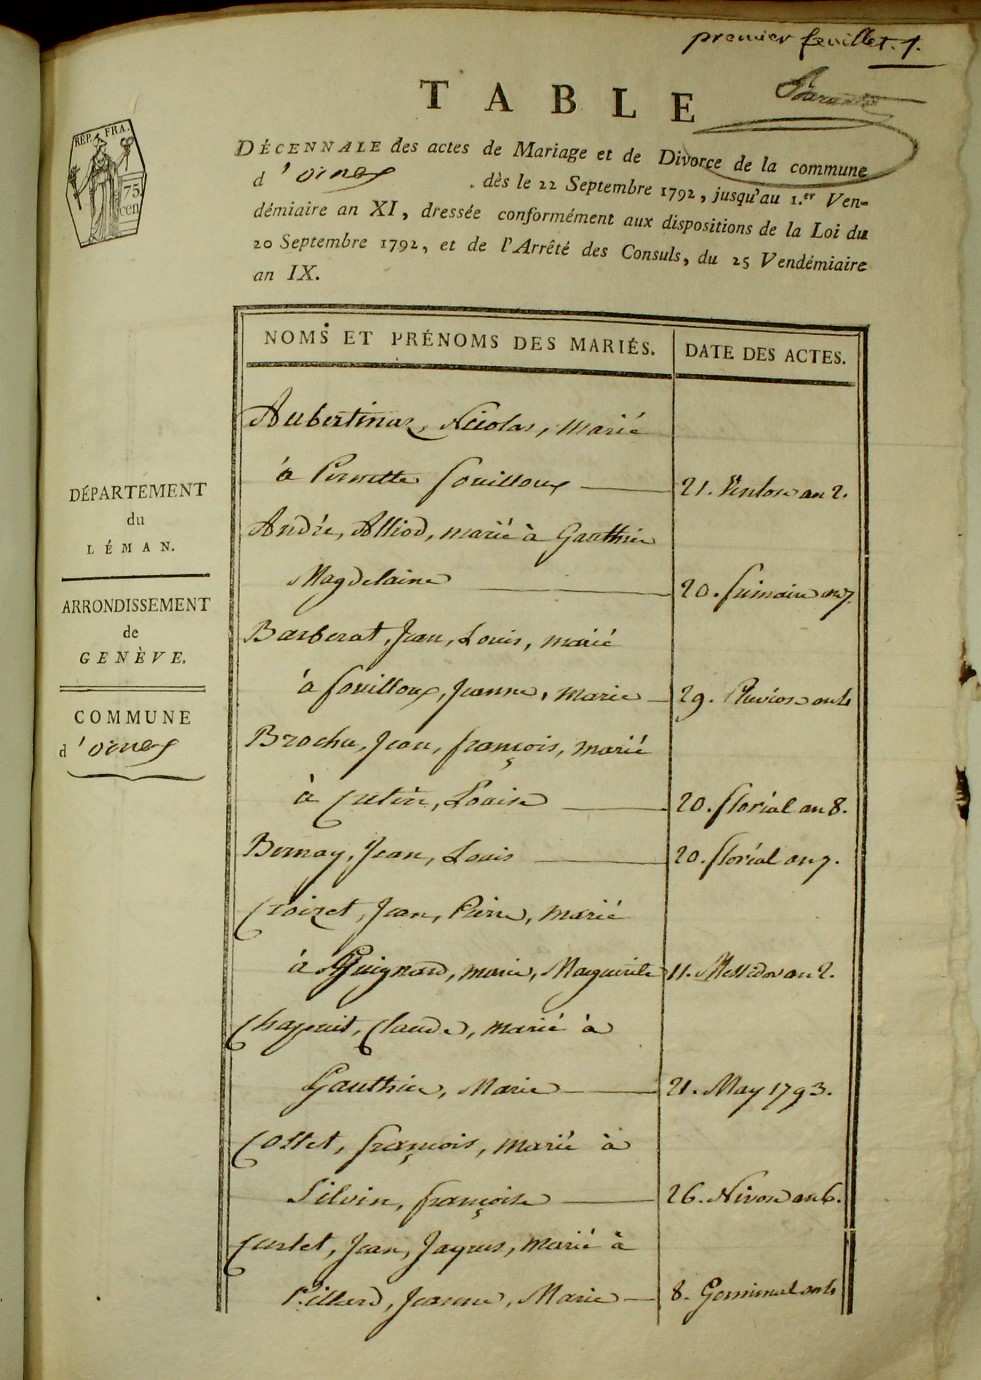 premier feuillet. 1.
TABLE
RÉP. FRA.
75
cen
DÉCENNALE des actes de Mariage et de Divorce de la commune
d'ornex . dès le 22 Septembre 1792, jusqu'au 1.er Ven-
démiaire an XI, dressée conformément aux dispositions de la Loi du
20 Septembre 1792, et de l'Arrêté des Consuls, du 25 Vendémiaire
an IX.
NOMS ET PRÉNOMS DES MARIÉS.
DATE DES ACTES.
DÉPARTEMENT
du
LÉMAN.
ARRONDISSEMENT
de
GENÈVE.
COMMUNE
d'ornex
Aubertinaz, Nicolas, marié
à Pernette fouilloux 21. Ventose an 2.
André, Alliod, marié à Gauthier
Magdelaine 20. frimaire an 7.
Barberat, Jean, Louis, marié
à fouilloux, Jeanne, marie 29. Pluviose an 4
Brochu, Jean, françois, marié
à Cutin, Louise 20. floréal an 8.
Bernay, Jean, Louis 20. floréal an 7.
Croizet, Jean, Pierre, marié
à Guignard, marie, Marguerite 11. Messidor an 2.
Chapuit, Claude, marié à
Gauthier, Marie 21. May 1793.
Costet, françois, marié à
Silvin, françoise 26. Nivose an 6.
Curtet, Jean, Jaques, marié à
Pillard, Jeanne, Marie 8. Germinal an 4